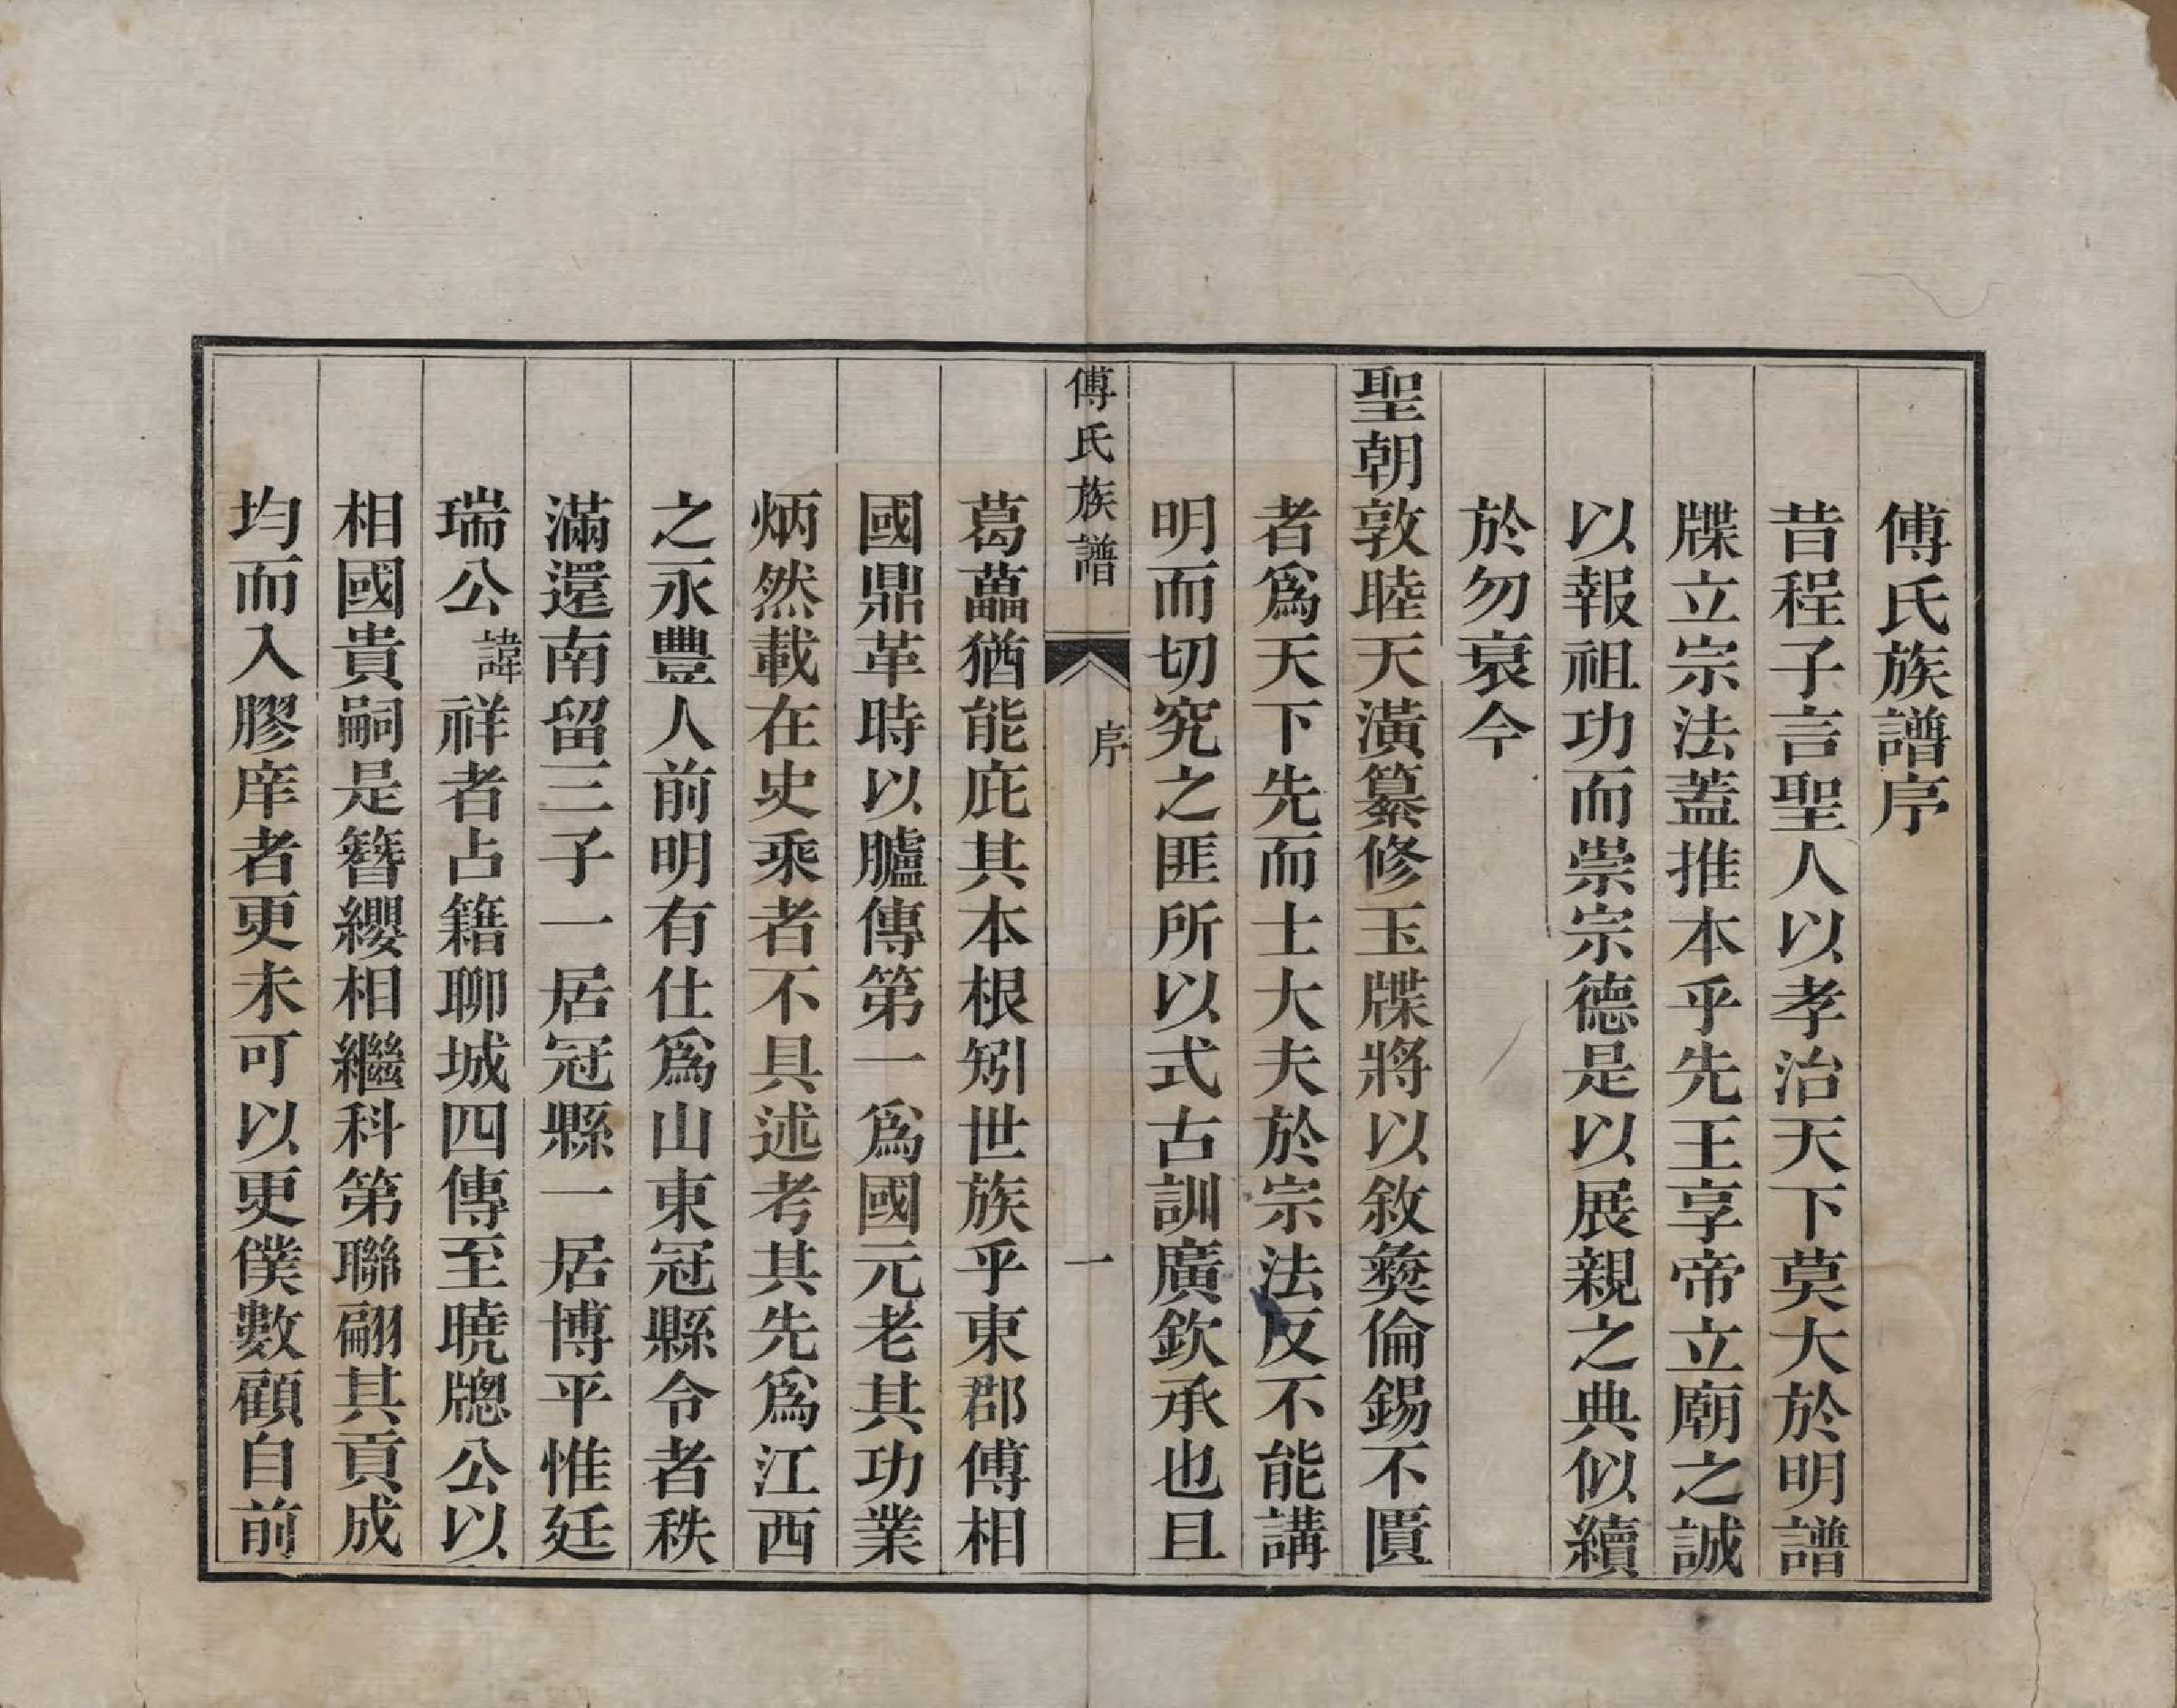 傅氏族譜序
昔程子言聖人以孝治天下莫大於明譜
牒立宗法蓋推本乎先王享帝立廟之誠
以報祖功而崇宗德是以展親之典似續
於勿衰今
聖朝敦睦天潢纂修玉牒將以敘彝倫錫不匱
者爲天下先而士大夫於宗法反不能講
明而切究之匪所以式古訓廣欽承也且
傅氏族譜 序 一
葛藟猶能庇其本根矧世族乎東郡傅相
國鼎革時以臚傳第一爲國元老其功業
炳然載在史乘者不具述考其先爲江西
之永豐人前明有仕爲山東冠縣令者秩
滿還南留三子一居冠縣一居博平惟廷
瑞公諱祥者占籍聊城四傳至曉牕公以
相國貴嗣是簪纓相繼科第聯翩其貢成
均而入膠庠者更未可以更僕數顧自前